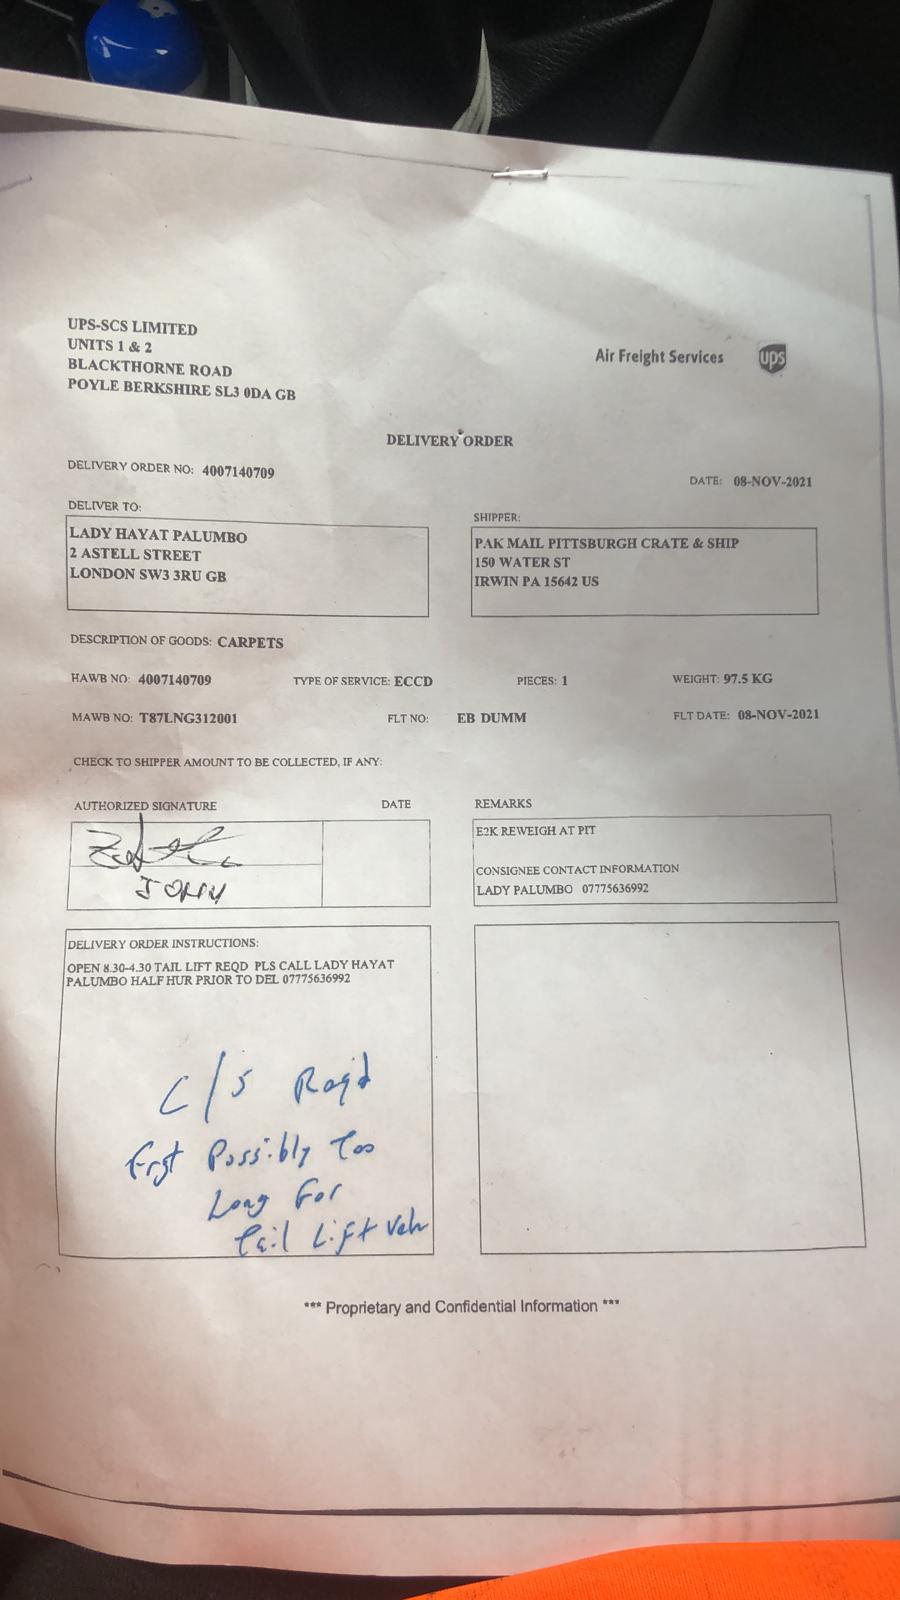 UPS-SCS LIMITED
UNITS 1 & 2
BLACKTHORNE ROAD
POYLE BERKSHIRE SL3 0DA GB
Air Freight Services ups
DELIVERY ORDER
DELIVERY ORDER NO: 4007140709
DATE: 08-NOV-2021
DELIVER TO:
LADY HAYAT PALUMBO
2 ASTELL STREET
LONDON SW3 3RU GB
SHIPPER:
PAK MAIL PITTSBURGH CRATE & SHIP
150 WATER ST
IRWIN PA 15642 US
DESCRIPTION OF GOODS: CARPETS
HAWB NO: 4007140709 TYPE OF SERVICE: ECCD PIECES: 1 WEIGHT: 97.5 KG
MAWB NO: T87LNG312001 FLT NO: EB DUMM FLT DATE: 08-NOV-2021
CHECK TO SHIPPER AMOUNT TO BE COLLECTED, IF ANY:
AUTHORIZED SIGNATURE DATE
JOHN
REMARKS
E2K REWEIGH AT PIT
CONSIGNEE CONTACT INFORMATION
LADY PALUMBO 07775636992
DELIVERY ORDER INSTRUCTIONS:
OPEN 8.30-4.30 TAIL LIFT REQD PLS CALL LADY HAYAT
PALUMBO HALF HUR PRIOR TO DEL 07775636992
C/S Reqd
Frgt Possibly Too
Long For
Tail Lift Veh
*** Proprietary and Confidential Information ***